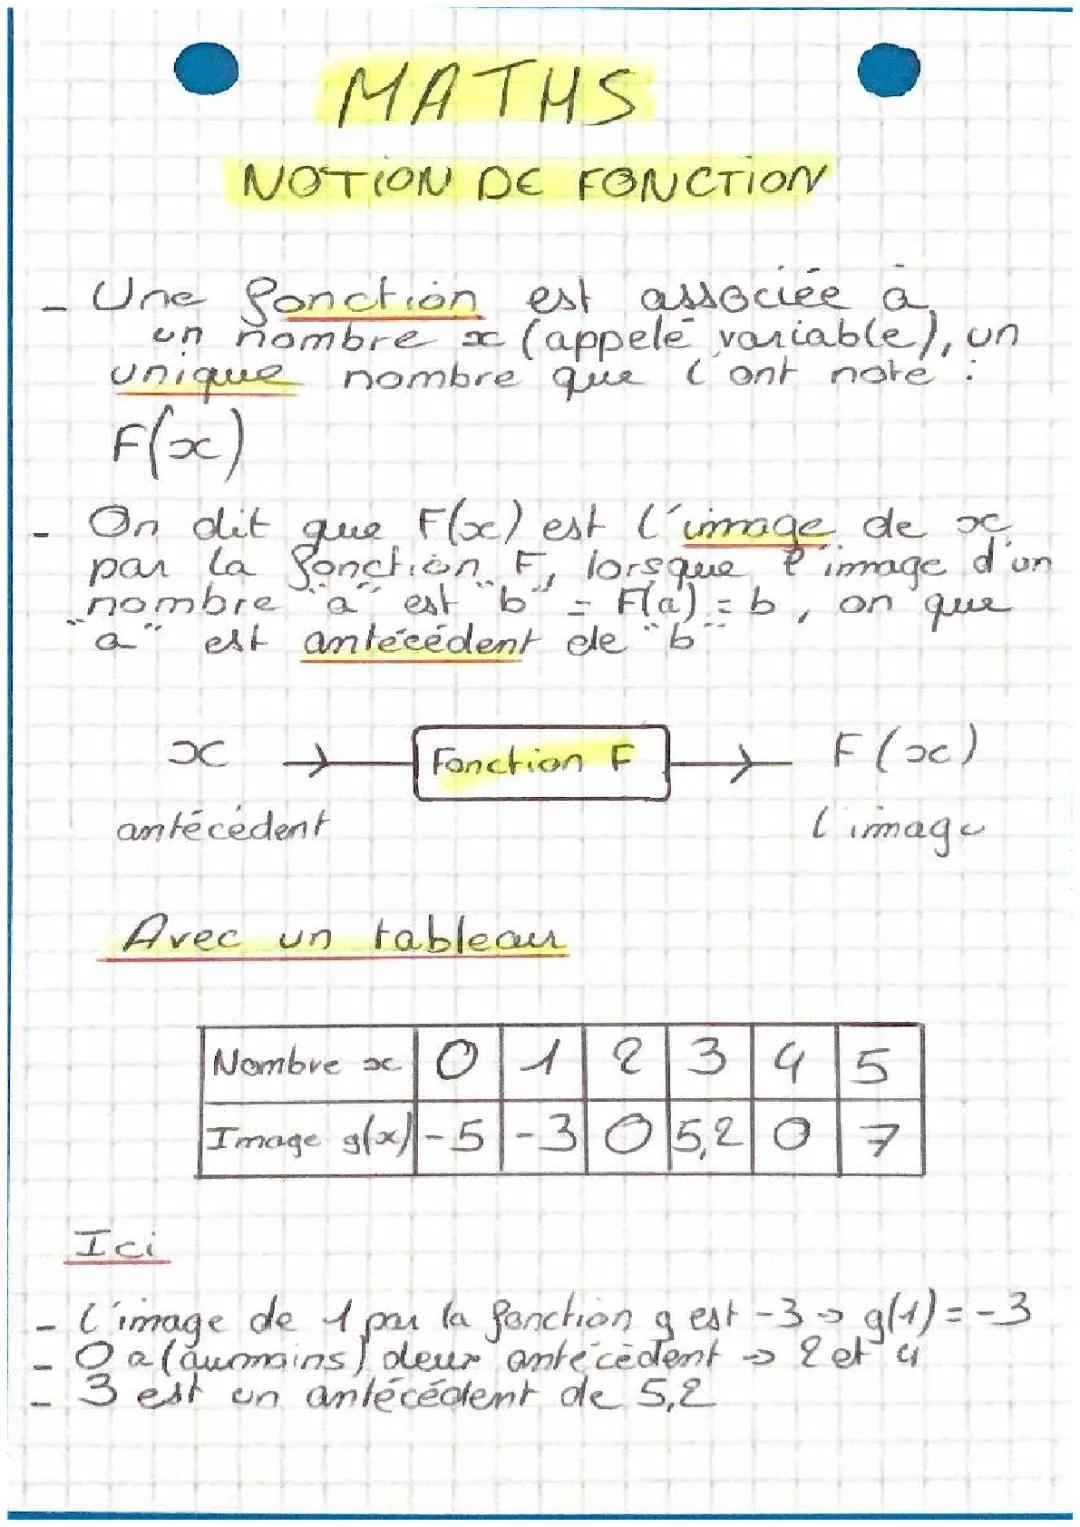 MATHS
NOTION DE FONCTION
- Une fonction est associée à
un nombre x (appelé variable), un
unique nombre que l'ont note :
F(x)
- On dit que F(x) est l'image de x
par la fonction F, lorsque l'image d'un
nombre "a" est "b" = F(a) = b, on que
"a" est antécédent de "b"
x → Fonction F → F(x)
antécédent l'image
Avec un tableau
Nombre x 0 1 2 3 4 5
Image g(x) -5 -3 0 5,2 0 7
Ici
- L'image de 1 par la fonction g est -3 → g(1) = -3
- 0 a (aumoins) deux antécédent → 2 et 4
- 3 est un antécédent de 5,2